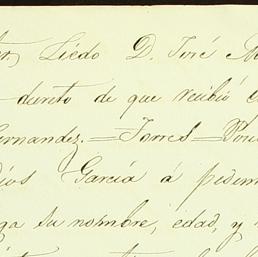 Licdo D. José
decreto de que recibió
ernandez.=Torres=
García á pedim
ga su nombre, edad, y